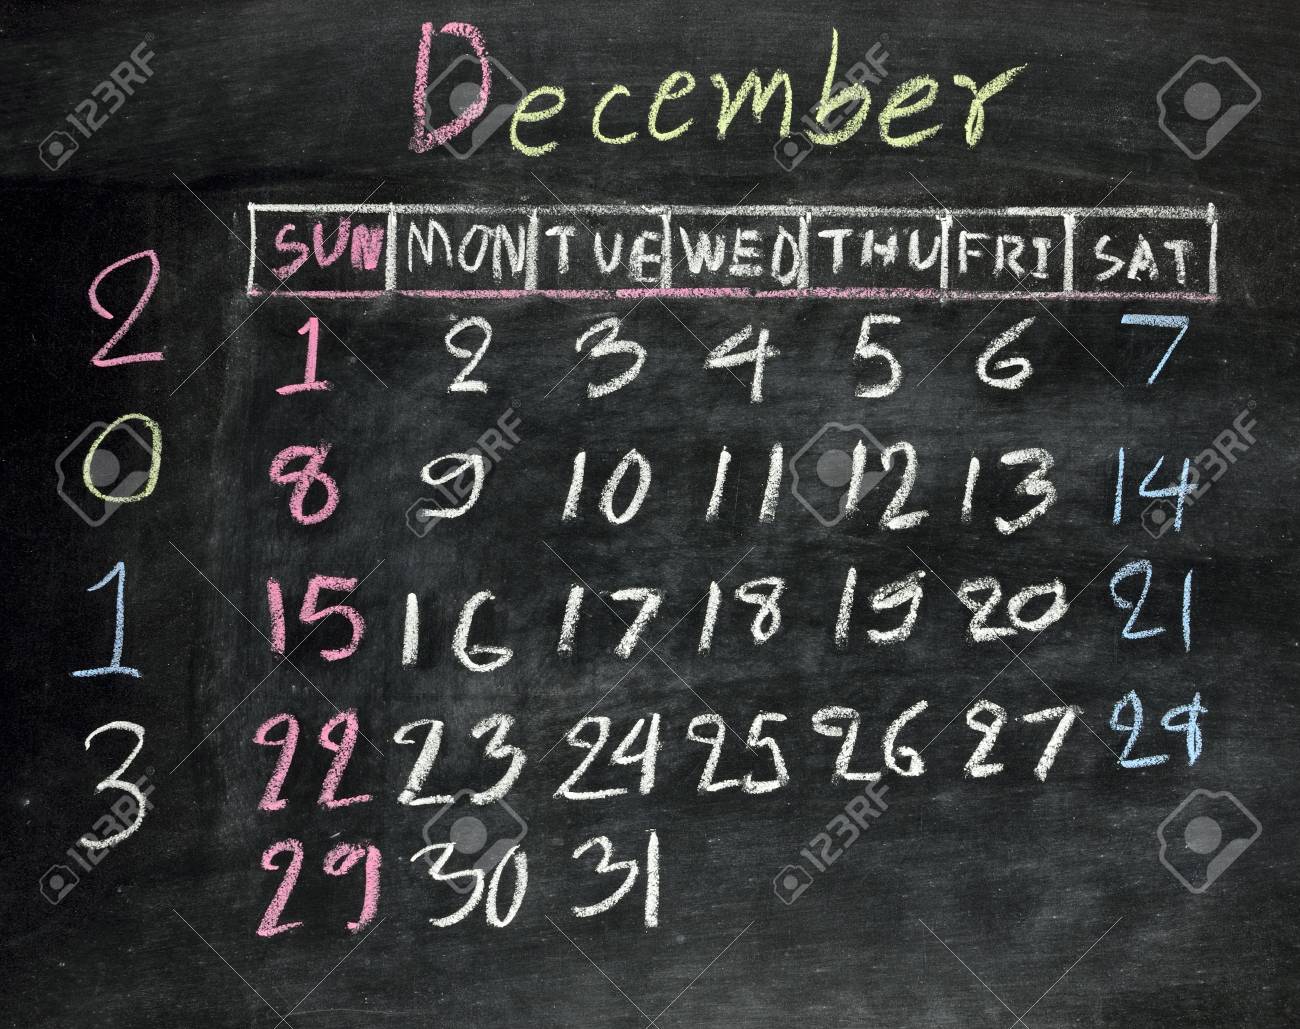 December
2013
SUN MON TUE WED THU FRI SAT
1 2 3 4 5 6 7
8 9 10 11 12 13 14
15 16 17 18 19 20 21
22 23 24 25 26 27 28
29 30 31
123RF
123RF
123RF
123RF
123RF
123RF
123RF
123RF